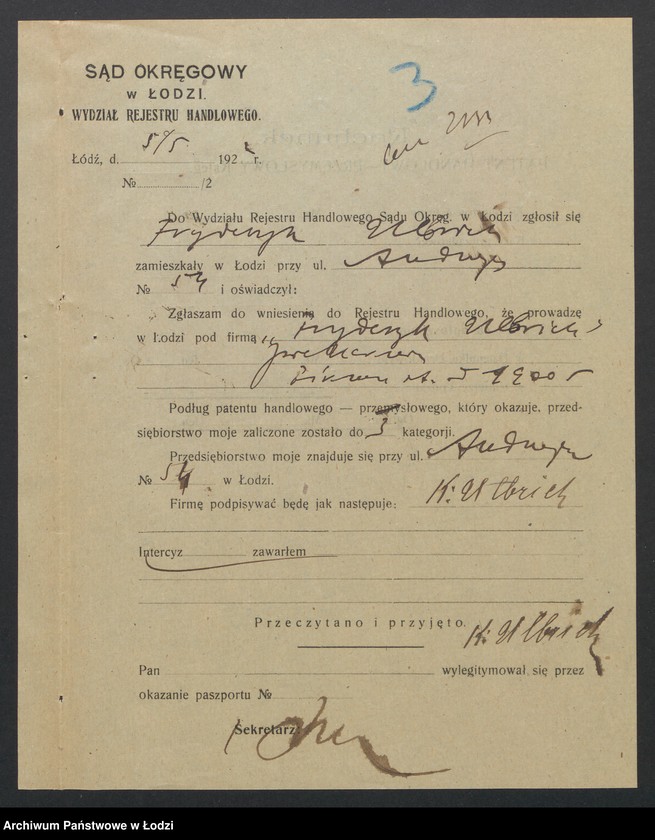 3
SĄD OKRĘGOWY
W ŁODZI.
WYDZIAŁ REJESTRU HANDLOWEGO.
Łódź, d. 5/5 192 r.
№ /2
Do Wydziału Rejestru Handlowego Sądu Okręg. w Łodzi zgłosił się
Fryderyk Ulbrich
zamieszkały w Łodzi przy ul. Andrzeja
№ 54 i oświadczył:
Zgłaszam do wniesienia do Rejestru Handlowego, że prowadzę
w Łodzi pod firmą „Fryderyk Ulbrich"
Podług patentu handlowego — przemysłowego, który okazuje, przed-
siębiorstwo moje zaliczone zostało do 3 kategorji.
Przedsiębiorstwo moje znajduje się przy ul. Andrzeja
№ 54 w Łodzi.
Firmę podpisywać będę jak następuje: K. Ulbrich
Intercyz zawarłem
Przeczytano i przyjęto. K. Ulbrich
Pan wylegitymował się przez
okazanie paszportu №
Sekretarz:
Archiwum Państwowe w Łodzi